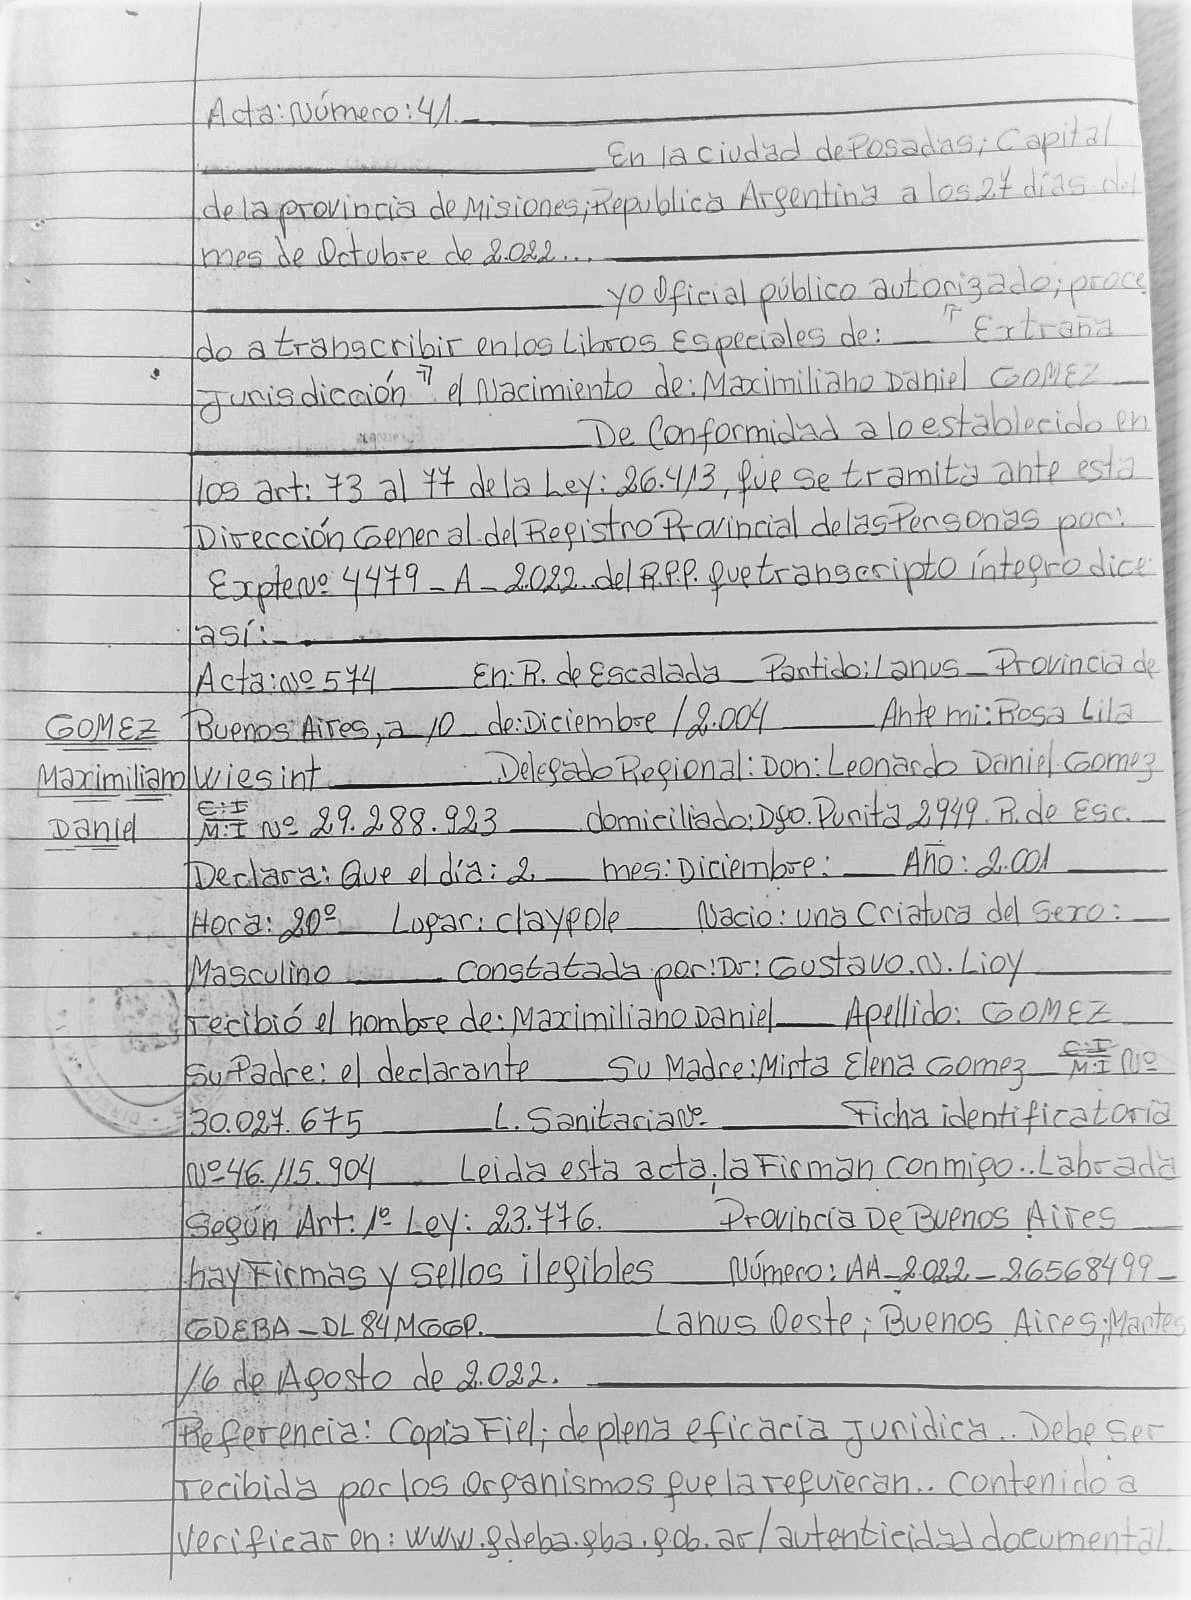 Acta: Número: 41.
En la ciudad de Posadas; Capital
de la provincia de Misiones; Republica Argentina a los 27 días del
mes de Octubre de 2.022...
yo Oficial público autorizado; proce
do a transcribir en los Libros Especiales de: "Extraña
Jurisdicción" el Nacimiento de: Maximiliano Daniel GOMEZ
De Conformidad a lo establecido en
los art: 73 al 77 de la Ley: 26.413, que se tramita ante esta
Dirección General del Registro Provincial de las Personas por:
Expte Nº 4479-A-2022. del R.P.P. que transcripto íntegro dice
así:-
Acta: Nº 574 En: R. de Escalada Partido: Lanus - Provincia de
GOMEZ Buenos Aires, a 10 de: Diciembre / 2.004 Ante mi: Rosa Lila
Maximiliano Wiesint Delegado Regional: Don: Leonardo Daniel Gomez
Daniel C.I M.I Nº 29.288.923 domiciliado: Dgo. Purita 2949. R. de Esc.
Declara: Que el día: 2. mes: Diciembre: Año: 2.001
Hora: 20º Lugar: Claypole Nacio: una Criatura del Sexo:
Masculino Constatada por: Dr: Gustavo. N. Lioy
recibió el nombre de: Maximiliano Daniel Apellido: GOMEZ
Su Padre: el declarante Su Madre: Mirta Elena Gomez C.I M.I Nº
30.027.675 L. Sanitaria Nº Ficha identificatoria
Nº 46.115.904 Leida esta acta, la Firman conmigo.. Labrada
Según Art: 1º Ley: 23.776. Provincia De Buenos Aires
hay Firmas y sellos ilegibles Número: AA-2.022-26568499-
GDEBA-DL84MGGP. Lanus Oeste; Buenos Aires; Martes
16 de Agosto de 2.022.
Referencia: Copia Fiel; de plena eficacia Juridica.. Debe ser
recibida por los Organismos que la requieran.. Contenido a
verificar en: www.gdeba.gba.gob.ar/autenticidad documental.